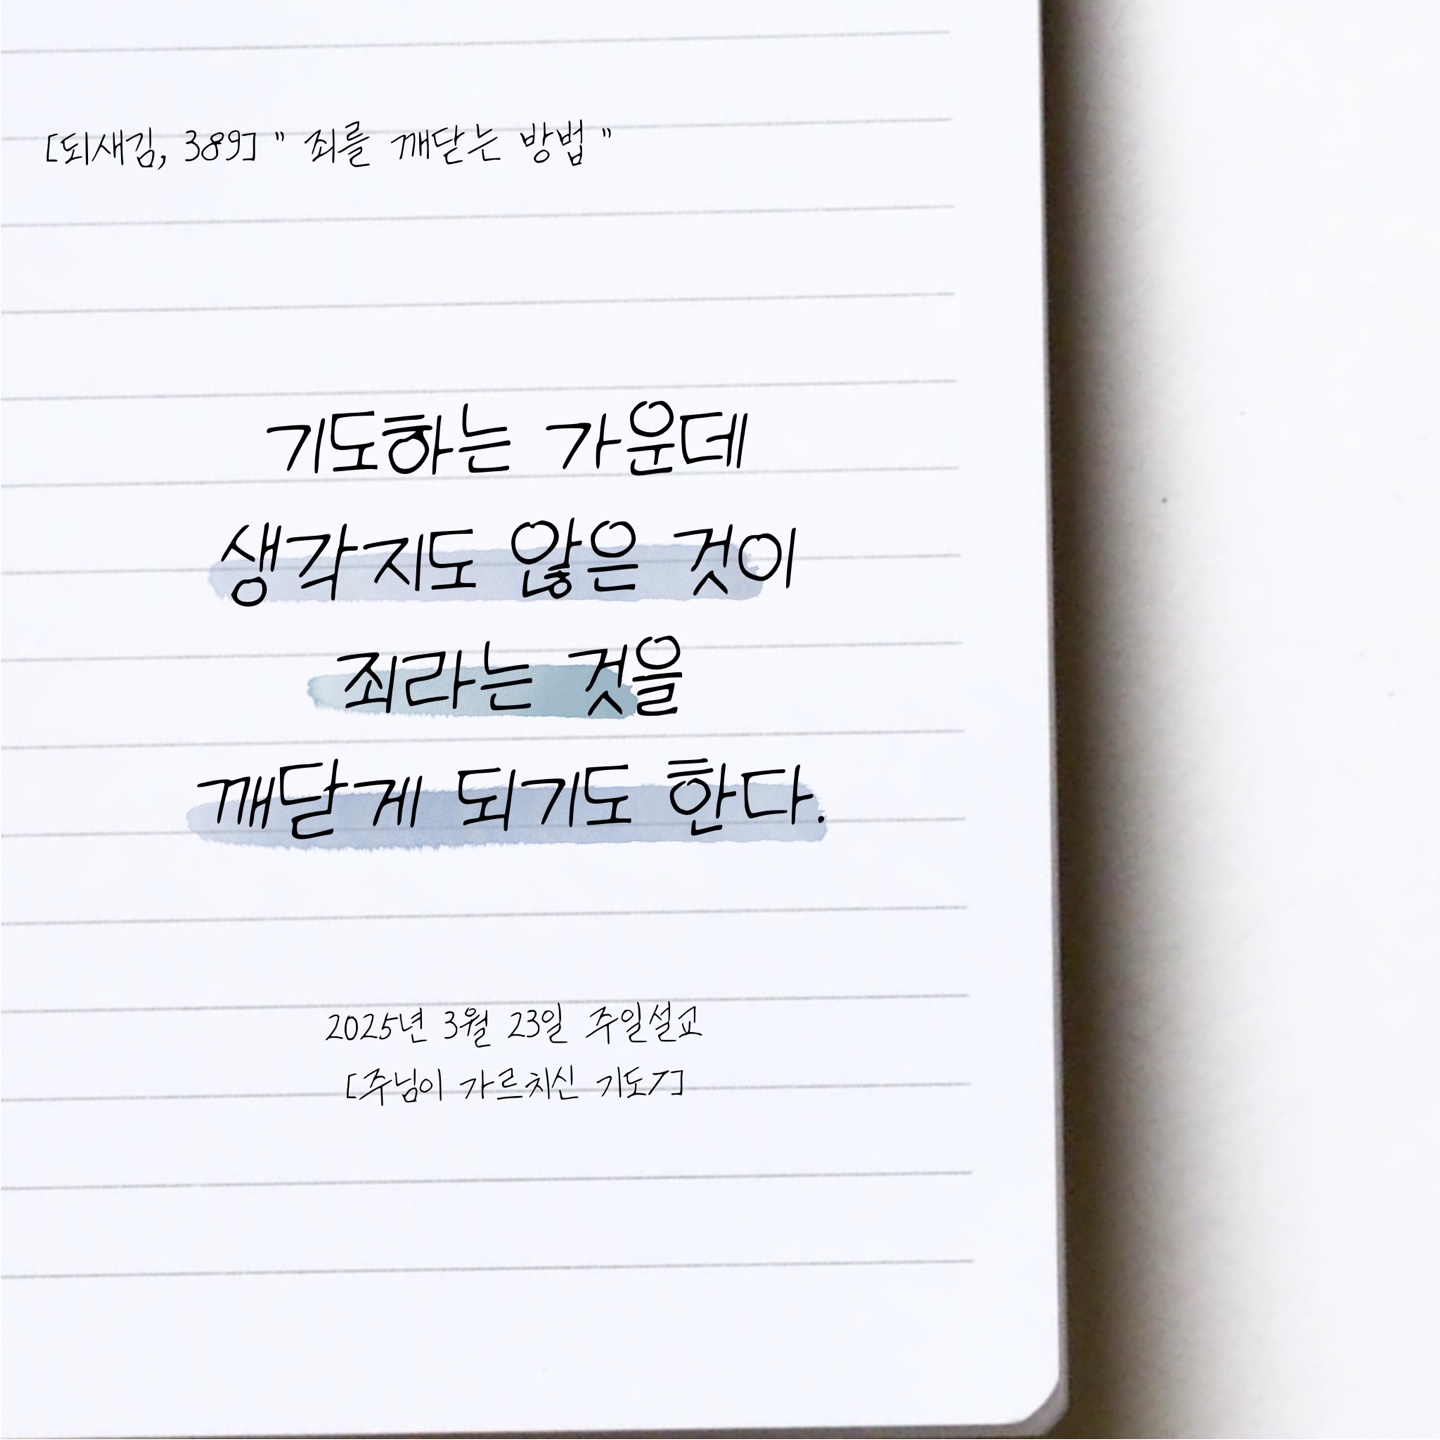 [되새김, 389] " 죄를 깨닫는 방법 "
기도하는 가운데
생각지도 않은 것이
죄라는 것을
깨닫게 되기도 한다.
2025년 3월 23일 주일설교
[주님이 가르치신 기도7]